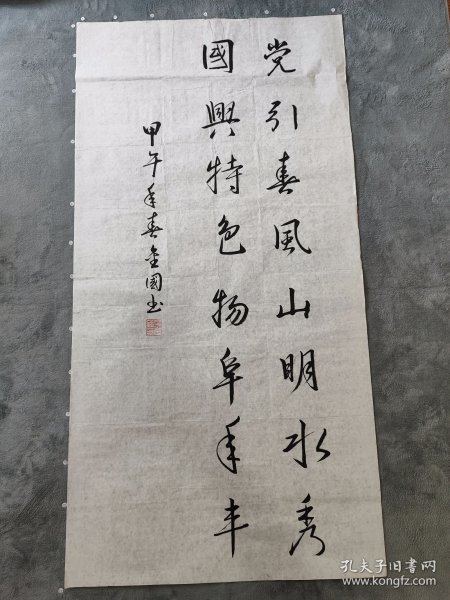 党引春風山明水秀
國興特色物阜年丰
甲午年春金國书
孔夫子旧书网
www.kongfz.com